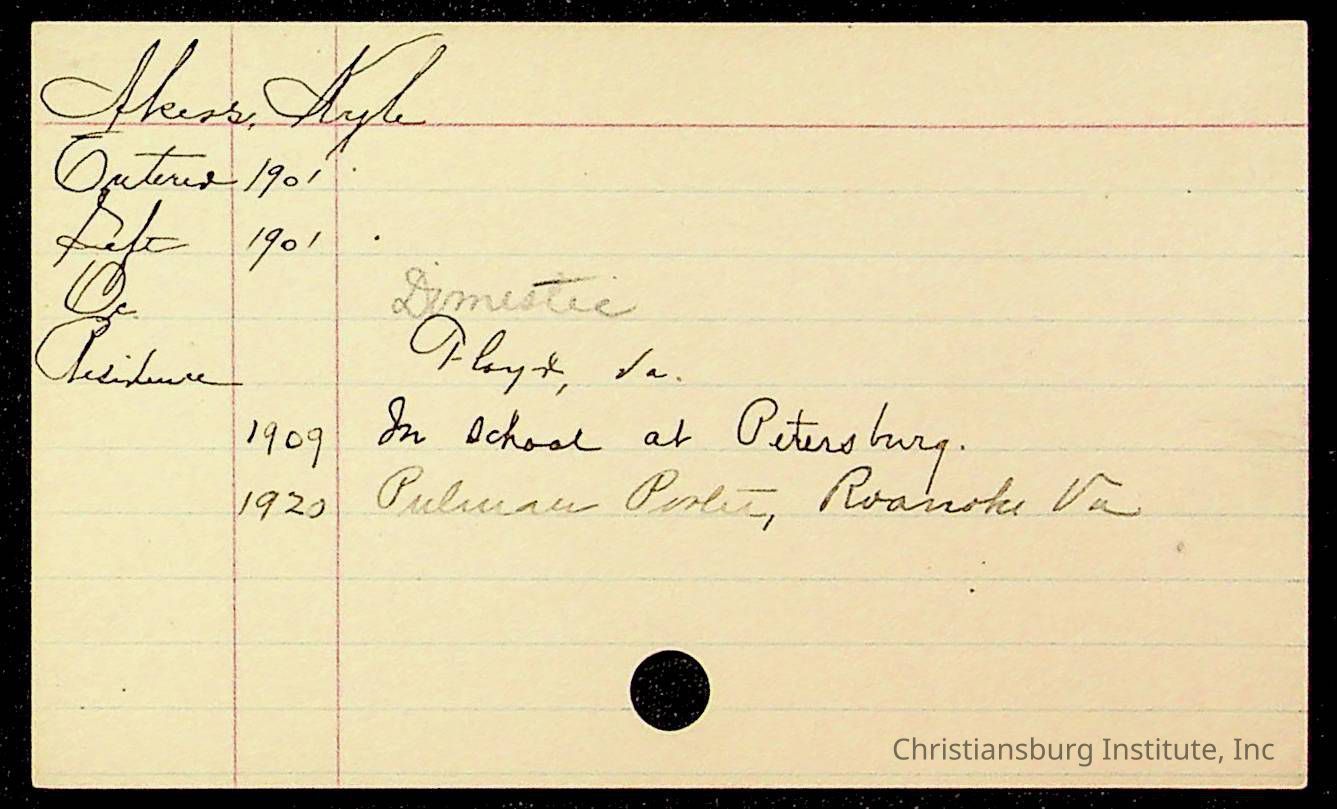 Akers, Kyle
Entered 1901
Left 1901
Oc. Domestic
Residence Floyd, Va.
1909 In school at Petersburg.
1920 Pulman Porter, Roanoke Va
Christiansburg Institute, Inc